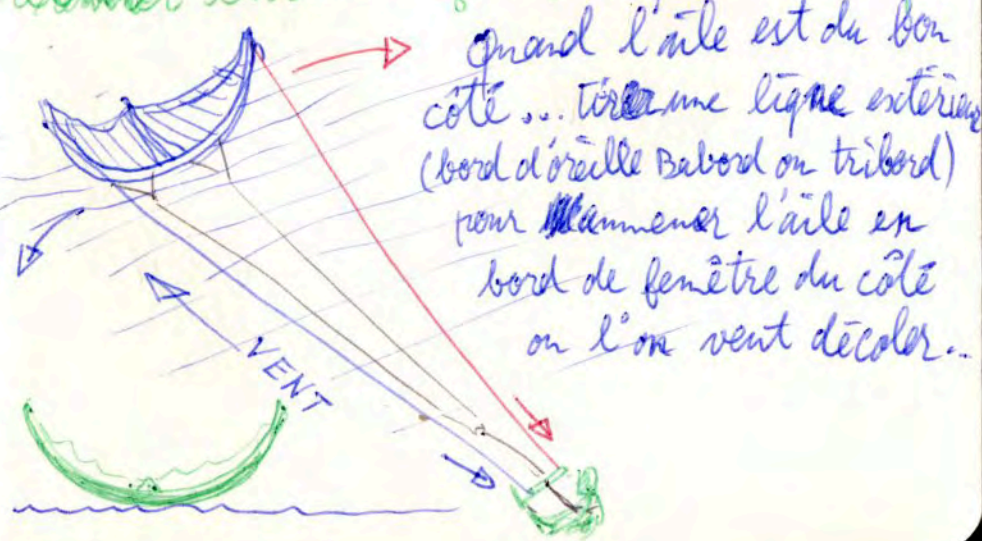 quand l'aile est du bon
côté... tirer une ligne extérieur
(bord d'oreille Babord ou tribord)
pour ammener l'aîle en
bord de fenêtre du côté
ou l'on veut décoler..
VENT